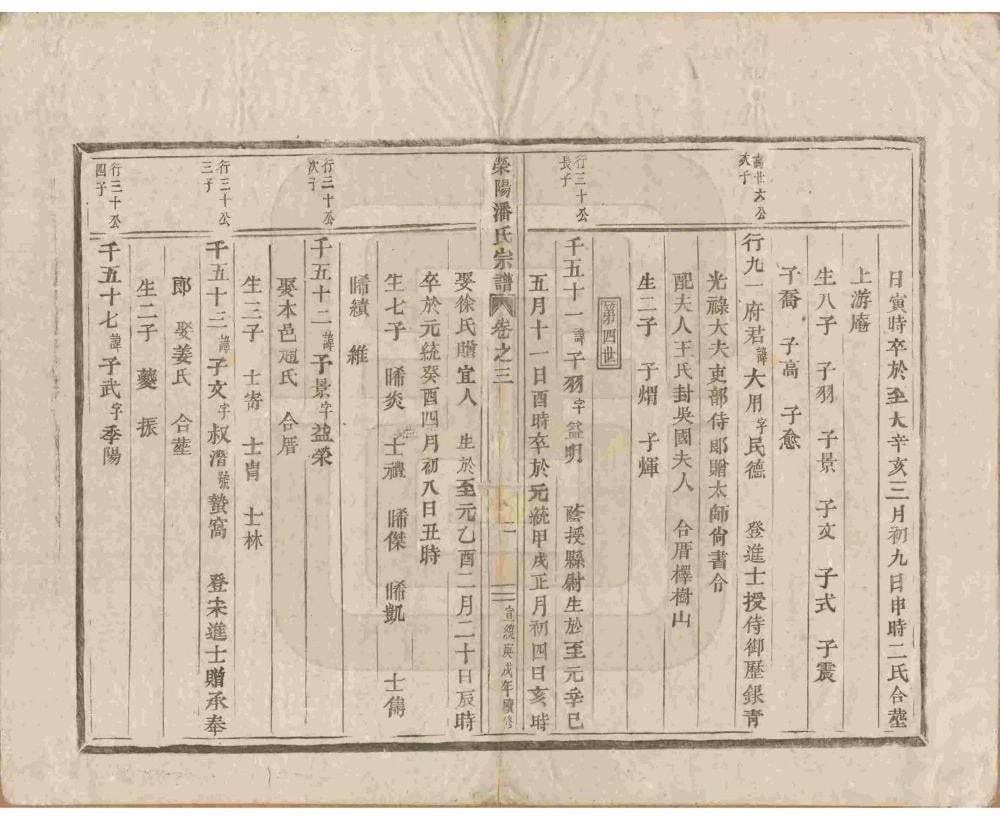 日寅時卒於至大辛亥三月初九日申時二氏合塟
上游庵
生八子 子羽 子景 子文 子式 子震
子喬 子高 子愈
萬廿六公次子
行九一府君諱大用字民德 登進士授侍御歷銀青
光祿大夫吏部侍郎贈太師尚書令
配夫人王氏封吳國夫人 合厝檡樹山
生二子 子熠 子煇
第四世
行三十公長子
千五十一諱子羽字益明 蔭授縣尉生於至元辛巳
五月十一日酉時卒於元統甲戌正月初四日亥時
滎陽潘氏宗譜 卷之三 二 宣統庚戌年續修
娶徐氏贈宜人 生於至元乙酉二月二十日辰時
卒於元統癸酉四月初八日丑時
生七子 晞炎 士禮 晞傑 晞凱 士儁
晞績 維
行三十公次子
千五十二諱子景字益榮
娶本邑趙氏 合厝
生三子 士寄 士胄 士林
行三十公三子
千五十三諱子文字叔潛號蟄窩 登宋進士贈承奉
郎 娶姜氏 合塟
生二子 夔 振
行三十公四子
千五十七諱子武字季陽